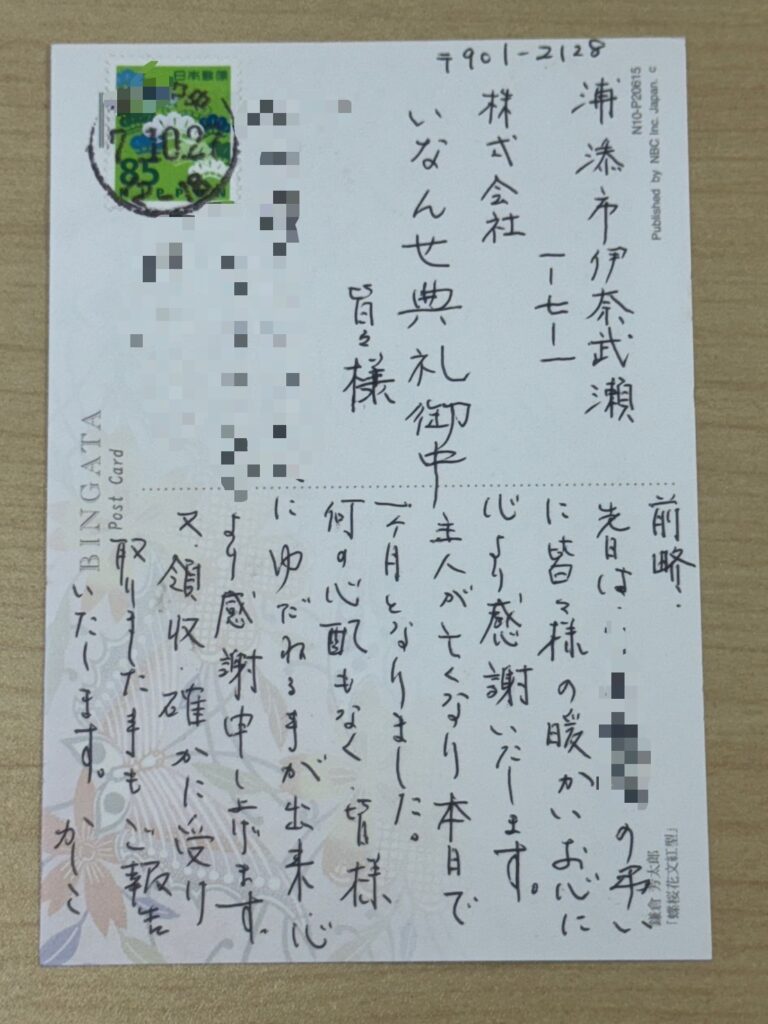 〒901-2128
浦添市伊奈武瀬
一ー七ー一
株式会社
いなんせ典礼御中
皆々様
前略.
先日は‥ の弔い
に皆々様の暖かいお心に
心より感謝いたします。
主人が亡くなり本日で
一ヶ月となりました。
何の心配もなく、皆様
にゆだねる事が出来心
より感謝申し上げます。
又、領収、確かに受け
取りました事もご報告
いたします。かしこ
日本郵便
7.10.27
85
NIPPON
12-18
BINGATA
Post Card
N10-P20615
Published by NBC Inc. Japan. c
鎌倉 芳太郎
「蝶桜花文紅型」